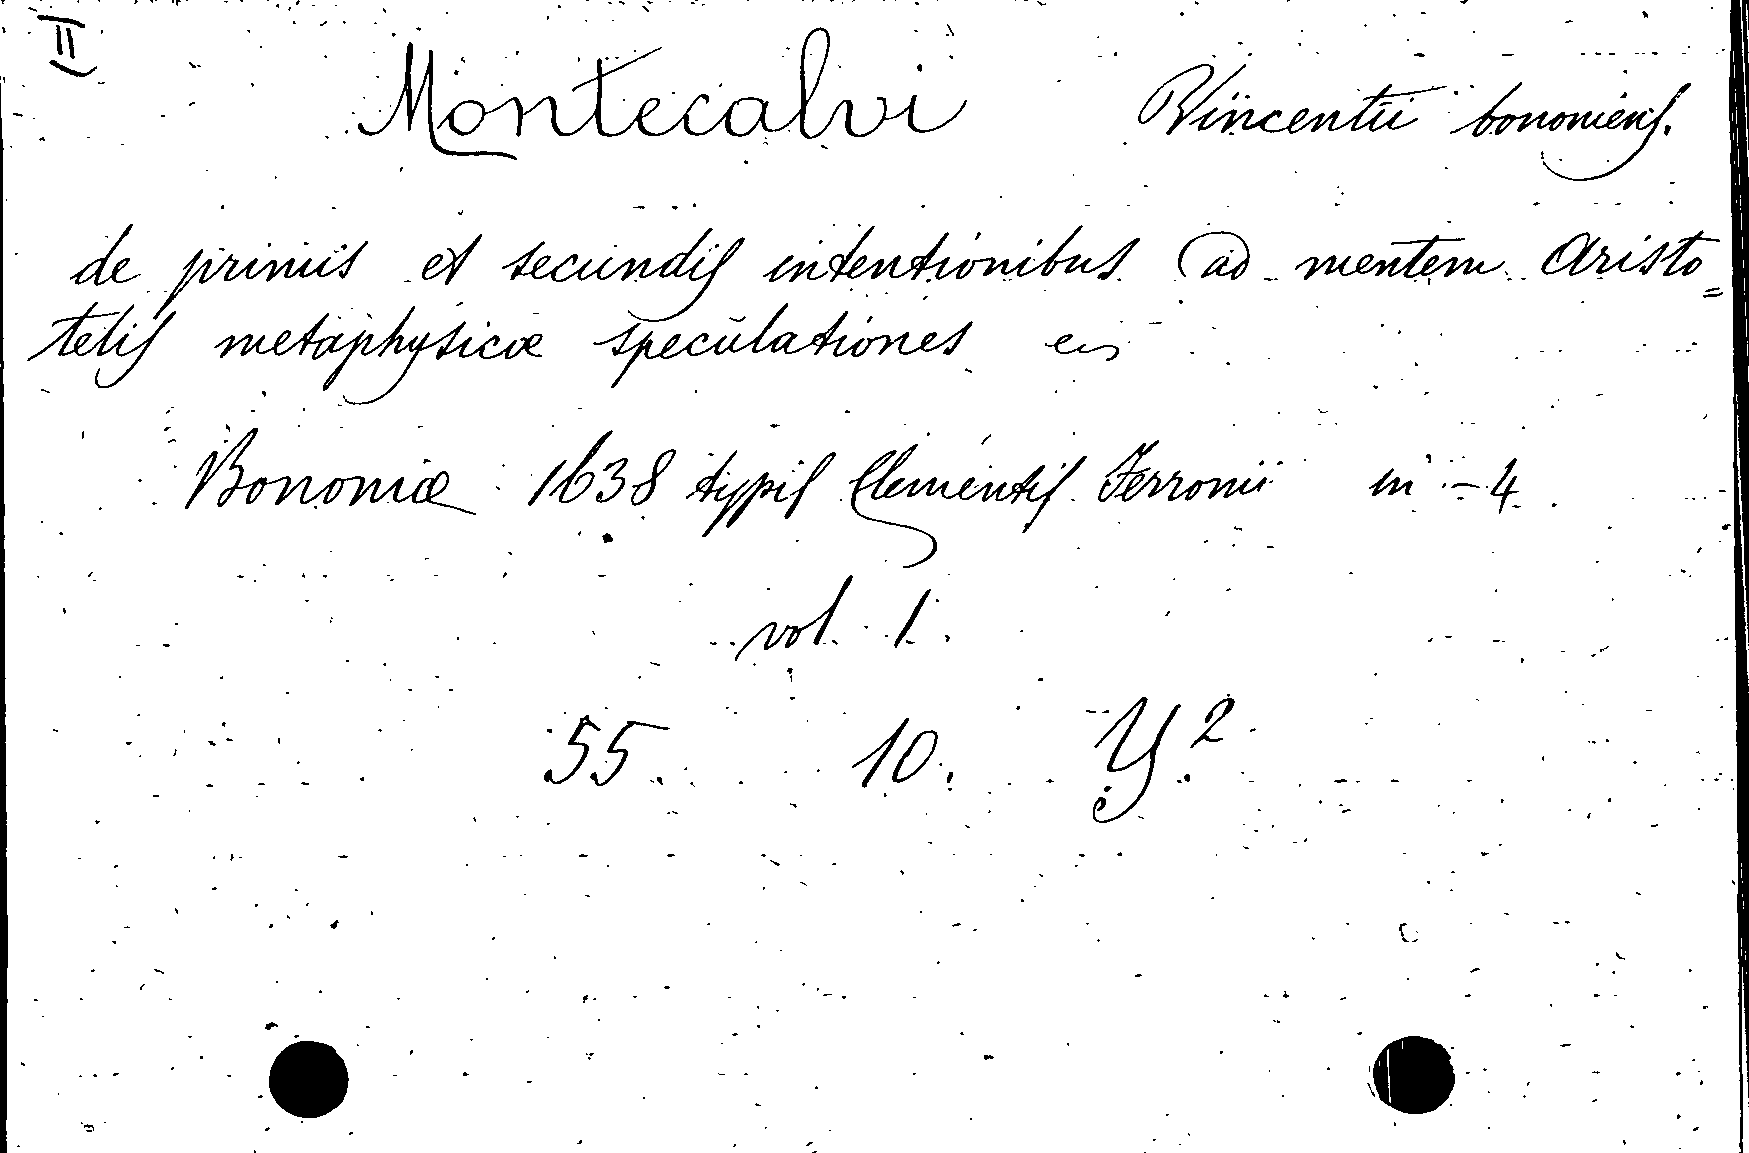 II
Montecalvi Vincentii bononiens.
de primis et secundis intentionibus ad mentem Aristo=
telis metaphysicæ speculationes
Bononiæ 1638 typis Clementis Ferronii in-4
vol. 1.
55. 10. Y.2